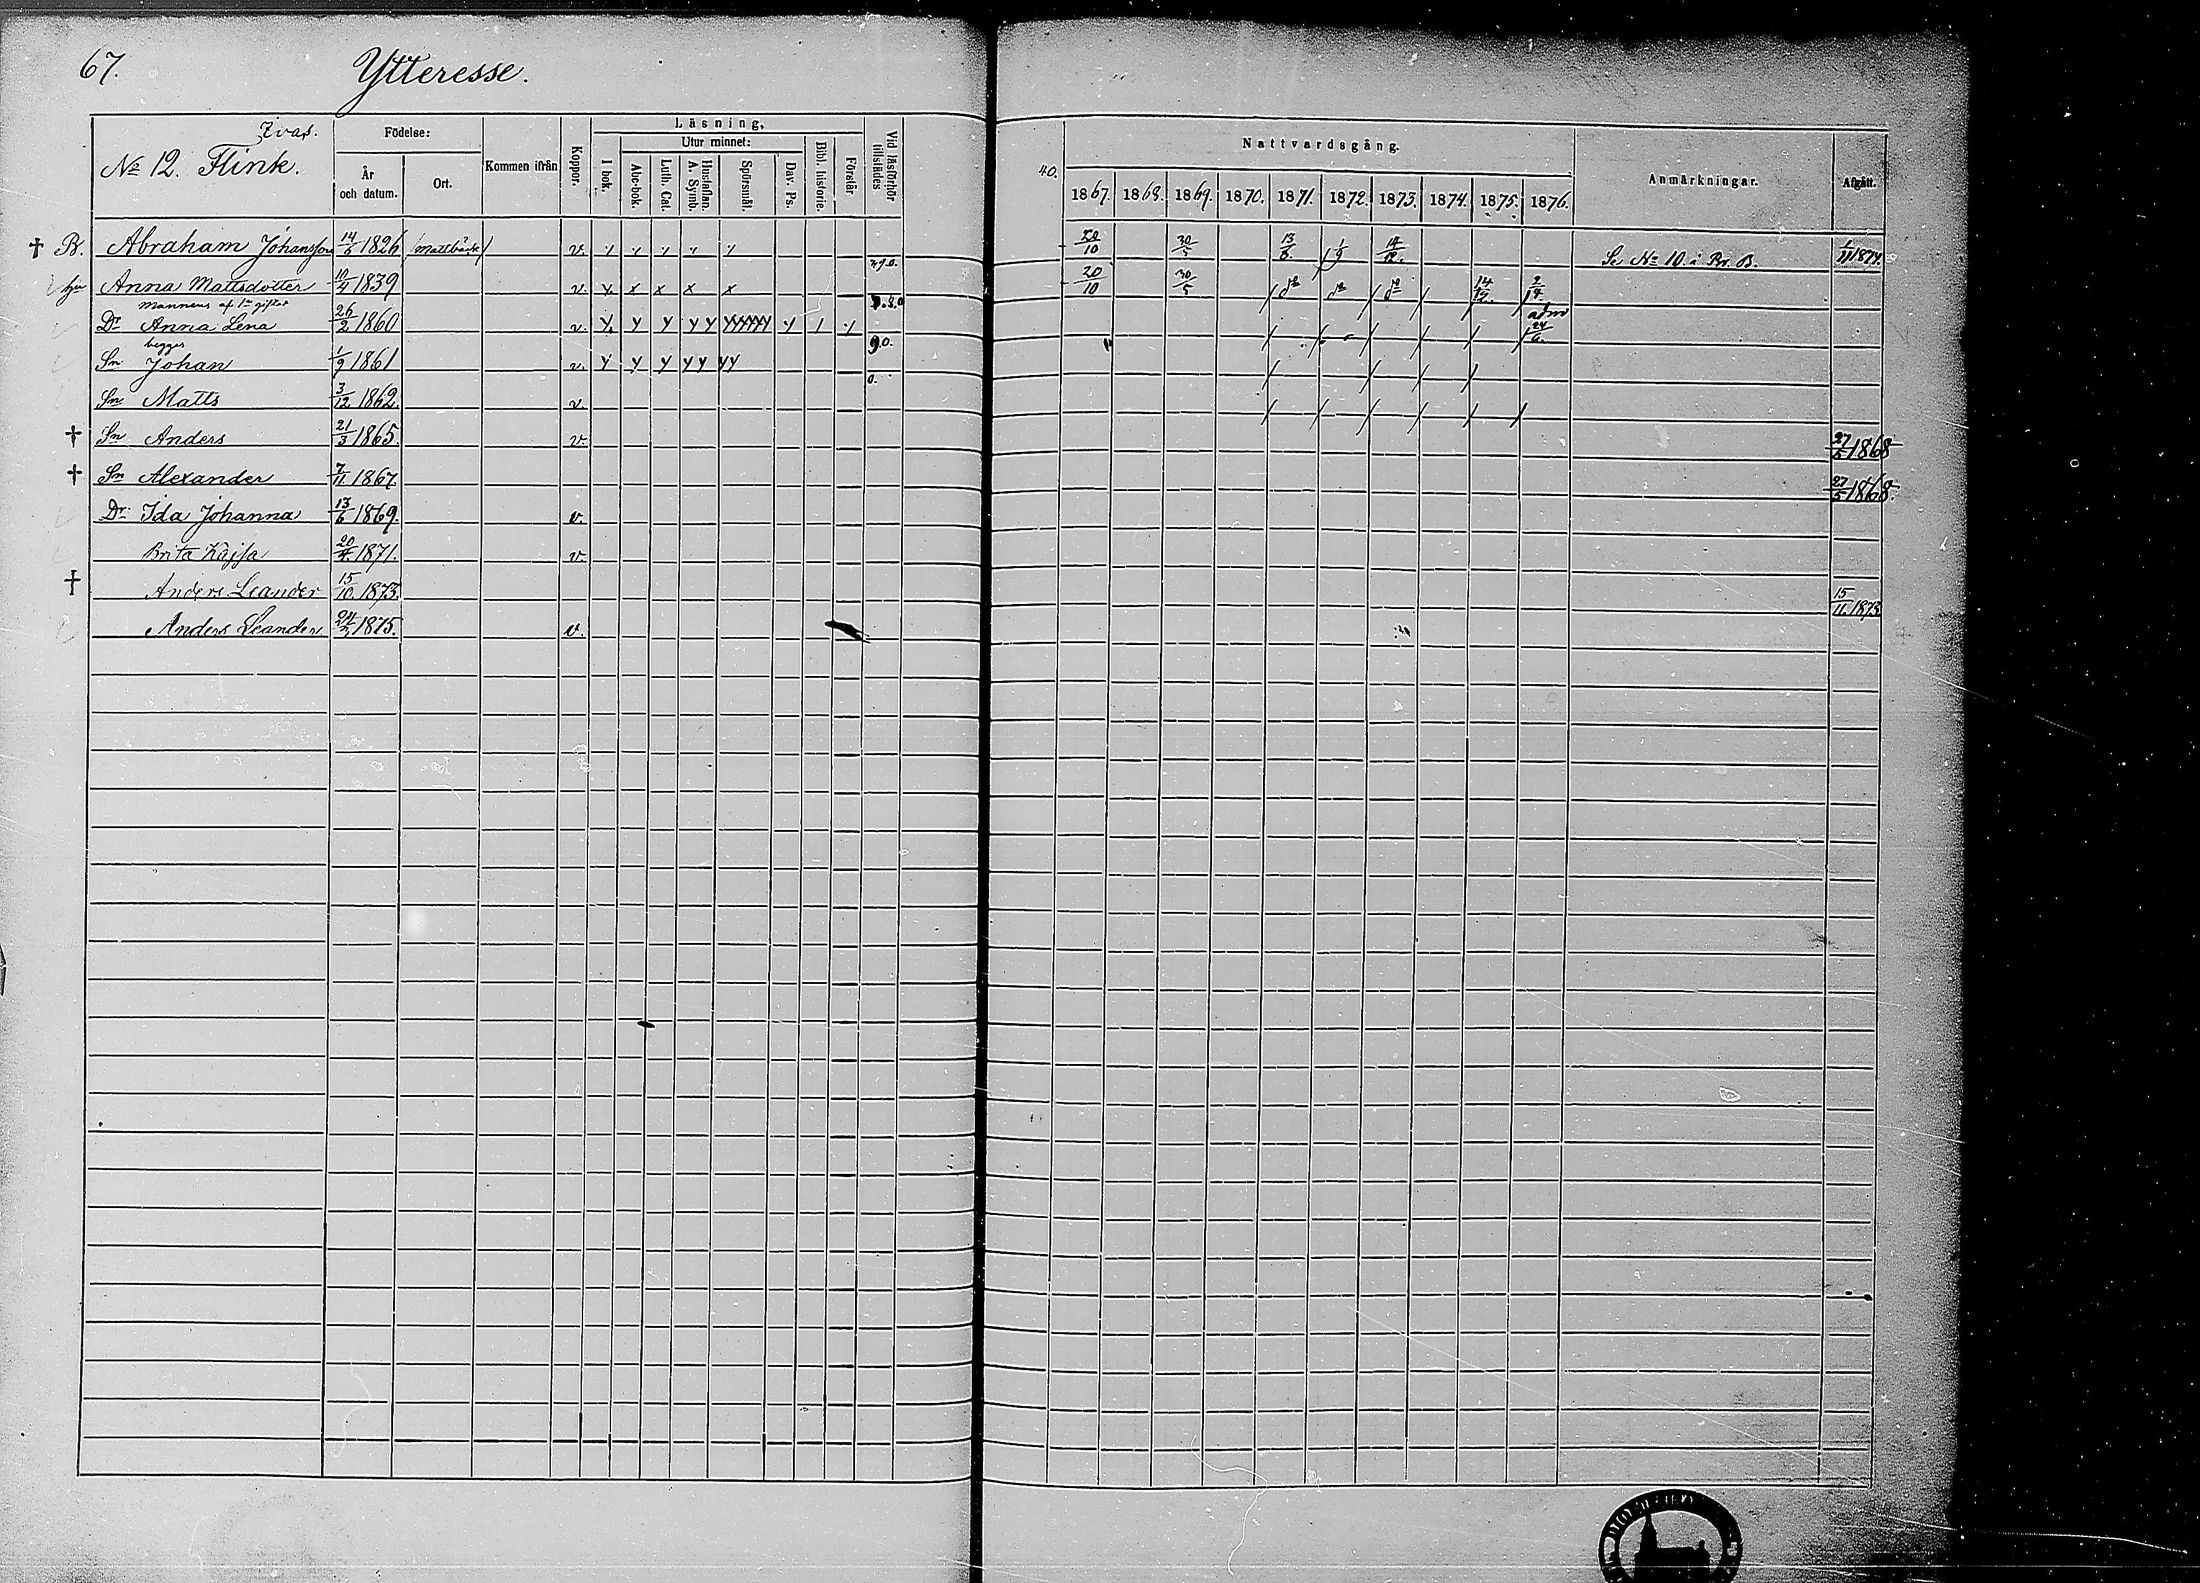 67.
Ytteresse.
No 12. Flink.
Födelse:
År
och datum.
Ort.
Kommen ifrån
Koppor.
Läsning.
Utur minnet:
I bok.
Abc-bok.
Luth. Cat.
Hustaflan.
A. Symb.
Spörsmål.
Dav. Ps.
Bibl. historie.
Förstår
Vid läsförhör
tillstädes
40.
Nattvardsgång.
1867. 1868. 1869. 1870. 1871. 1872. 1873. 1874. 1875. 1876.
Anmärkningar.
Afgått.
† B. Abraham Johansson 14/6 1826 v. 20/10 30/5 Se No 10 i Br. B. 1/11 1874.
Anna Mattsdotter 10/4 1839 v. x x x x x 20/10 30/5 do do do 14/12 2/4
mannens af 1sta giftet
Dr Anna Lena 26/2 1860 v.
begges
Sn Johan 1/9 1861 v.
Sn Matts 3/12 1862. v.
† Sn Anders 21/3 1865. v. 27/5 1868
† Sn Alexander 7/11 1867. 27/5 1868.
Dr Ida Johanna 13/6 1869. v.
Brita Kajsa 20/4 1871. v.
† Anders Leander 15/10 1873. 15/11 1873
Anders Leander 24/2 1875. v.